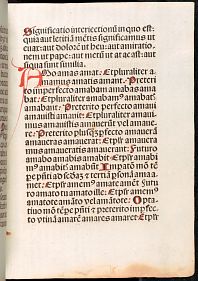 Significatio interiectionū in quo est:
quia aut letitiā mētis significamus ut
euax: aut dolorē ut heu: aut āmiratio
nem ut pape: aut metū ut at at: et si
qua sunt similia.
Amo amas amat. Et pluraliter a
mamus amatis amant. Preteri
to imperfecto amabam amabas ama
bat: Et pluraliter amabamꝰ amabatꝭ
amabant: Preterito perfecto amaui
amauisti amauit: Et pluraliter amaui
mus amauistis amauerūt vel amaue-
re: Preterito plusqȝ perfecto amauerā
amaueras amauerat: Et pſr amauera
mus amaueratis amauerant: Futuro
amabo amabis amabit: Et pſr amabi
mꝰ amabitis amabunt: Impatō mō tꝑe
pe pn̄ti ad scd̄am et tertiā psonā ama a-
met: Et pſr amemꝰ amate amēt: Futu
ro amato tu amato ille: Et pſr amemꝰ
amatote amāto vel amātote: Opta-
tiuo mō tꝑe pn̄ti et preterito imperfec-
to vtinā amarē amares amaret: Et pſr